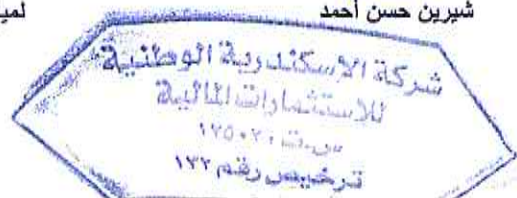 شيرين حسن أحمد
لميـ
شركة الإسكندرية الوطنية
للاستثمارات المالية
س.ت ١٧٥٠٢٠
ترخيص رقم ١٣٢